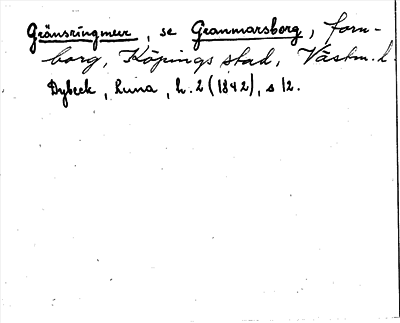 Gränsringmur, se Granmarsborg, forn-
borg, Köpings stad, Västm. l.
Dybeck, Runa, h. 2 (1842), s 12.